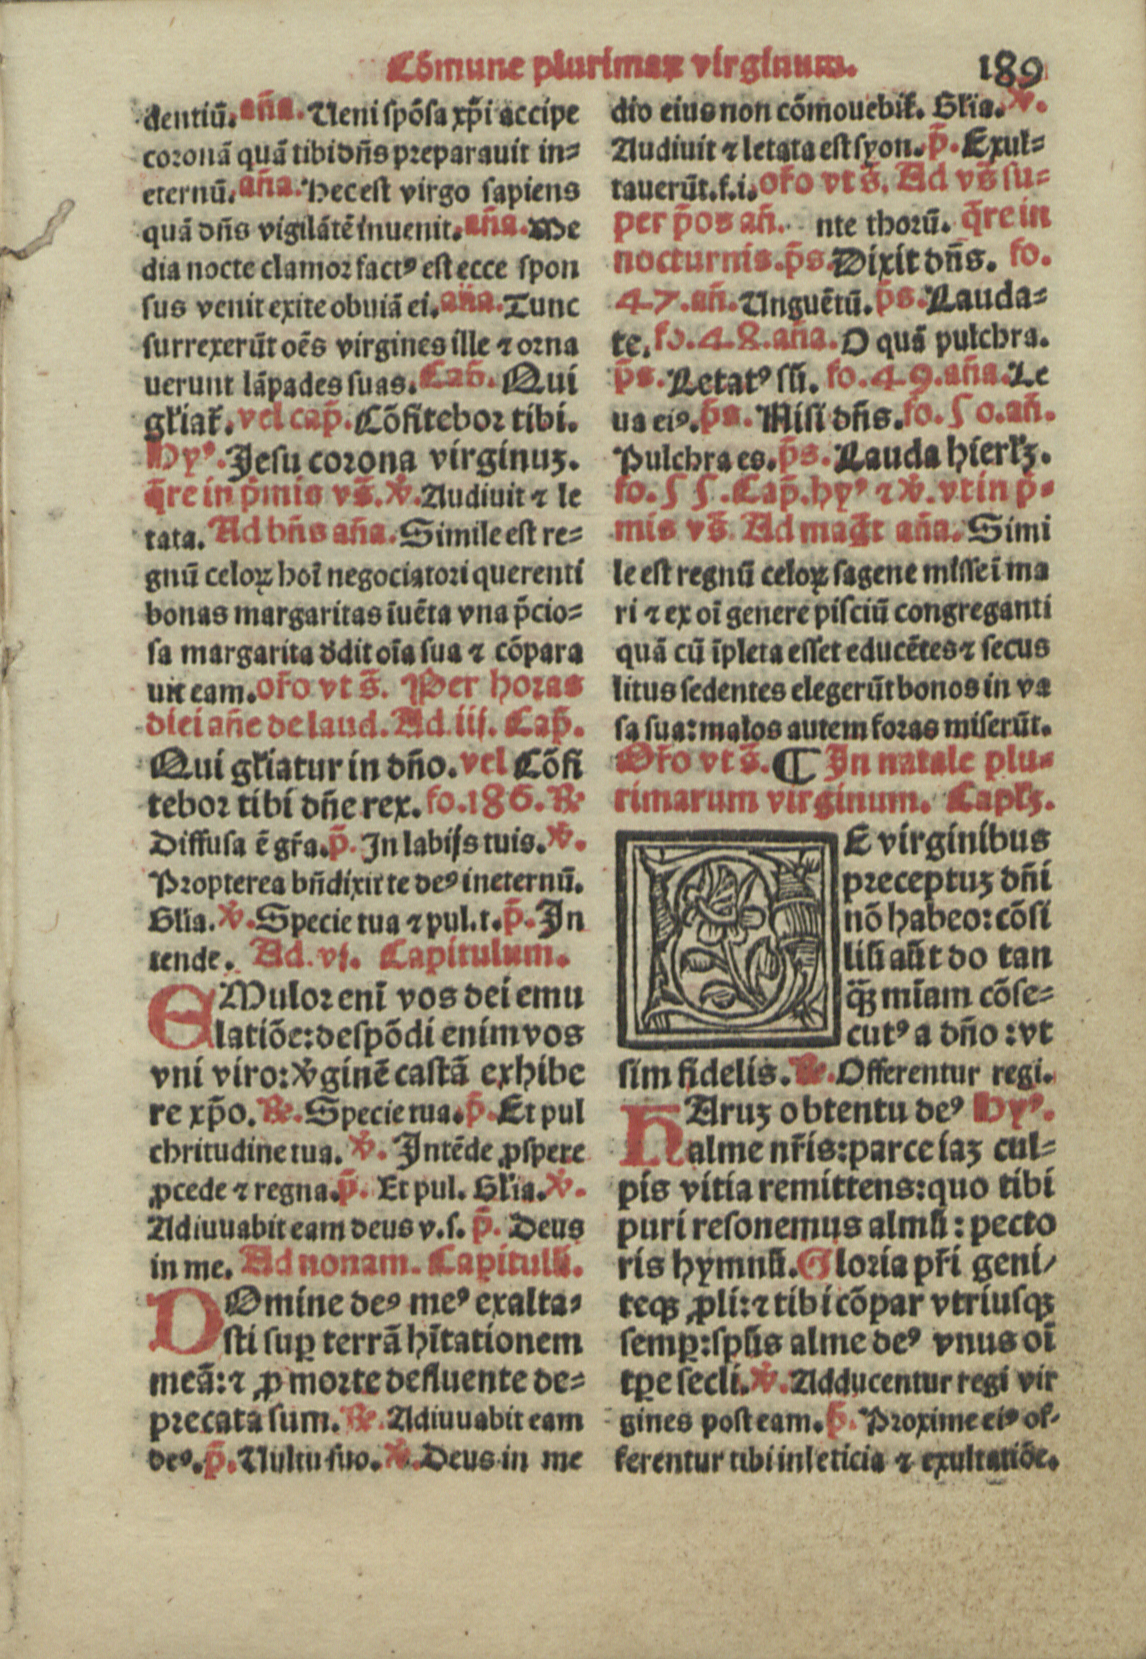 Cōmune plurimaꝝ virginum. 189
dentiū. aña. Ueni spōsa xp̄i accipe
coronā quā tibi dñs preparauit in-
eternū. aña. Hec est virgo sapiens
quā dñs vigilātē inuenit. aña. Me
dia nocte clamor factꝰ est ecce spon
sus venit exite obuiā ei. aña. Tunc
surrexerūt oēs virgines ille ⁊ orna
uerunt lāpades suas. Cap̄. Qui
gl̄iat̄. vel cap̄. Cōfitebor tibi.
Hyꝰ. Jesu corona virginuꝫ.
q̄re in p̄mis vs̄. ℣. Audiuit ⁊ le
tata. Ad bñs aña. Simile est re-
gnū celoꝝ hoī negociatori querenti
bonas margaritas īuēta vna p̄cio-
sa margarita ddit oīa sua ⁊ cōpara
uit eam. or̄o vt s̄. Per horas
diei añe de laud. Ad iij. Cap̄.
Qui gl̄iatur in dño. vel Cōfi
tebor tibi dñe rex. fo. 186. ℟
Diffusa ē gr̄a. p̄. In labijs tuis. ℣.
Propterea bñdixit te deꝰ ineternū.
Gl̄ia. ℣. Specie tua ⁊ pul. t. p̄. In
tende. Ad. vj. Capitulum.
EMulor enī vos dei emu
latiōe: despōdi enim vos
vni viro: ℣ginē castā exhibe
re xp̄o. ℟. Specie tua. p̄. Et pul
chritudine tua. ℣. Intēde ꝓspere
ꝓcede ⁊ regna. p̄. Et pul. Gl̄ia. ℣.
Adiuuabit eam deus v. s. p̄. Deus
in me. Ad nonam. Capitulū.
DOmine deꝰ meꝰ exalta-
sti suꝑ terrā hītationem
meā: ⁊ ꝓ morte defluente de-
precata sum. ℟. Adiuuabit eam
deꝰ. p̄. Uultu suo. ℣. Deus in me
dio eius non cōmouebit̄. Gl̄ia. ℣.
Audiuit ⁊ letata est syon. p̄. Exul-
tauerūt. f. i. or̄o vt s̄. Ad vs̄ su-
per p̄os añ. nte thorū. q̄re in
nocturnis. p̄s. Dixit dñs. fo.
47. añ. Unguētū. p̄s. Lauda-
te. fo. 48. aña. O quā pulchra.
p̄s. Letatꝰ sū. fo. 49. aña. Le
ua eiꝰ. p̄s. Misi dñs. fo. 50. añ.
Pulchra es. p̄s. Lauda hierl̄ꝫ.
fo. 55. Cap̄. hyꝰ ⁊ ℣. vt in p̄-
mis vs̄ Ad maḡt aña. Simi
le est regnū celoꝝ sagene misse ī ma
ri ⁊ ex oī genere pisciū congreganti
quā cū īpleta esset educētes ⁊ secus
litus sedentes elegerūt bonos in va
sa sua: malos autem foras miserūt.
Or̄o vt s̄. ¶ In natale plu-
rimarum virginum. Capl̄ꝫ.
DE virginibus
preceptuꝫ dñi
nō habeo: cōsi
liū aūt do tan
q̄ꝫ mīam cōse-
cutꝰ a dño: vt
sim fidelis. ℟. Offerentur regi.
HAruꝫ obtentu deꝰ Hyꝰ.
alme nr̄is: parce iaꝫ cul-
pis vitia remittens: quo tibi
puri resonemus almū: pecto
ris hymnū. Gloria pr̄i geni/
teqꝫ ꝓli: ⁊ tibi cōpar vtriusqꝫ
semꝑ: sp̄ūs alme deꝰ vnus oī
tꝑe secli. ℣. Adducentur regi vir
gines post eam. p̄. Proxime eiꝰ of-
ferentur tibi in leticia ⁊ exultatiōe.